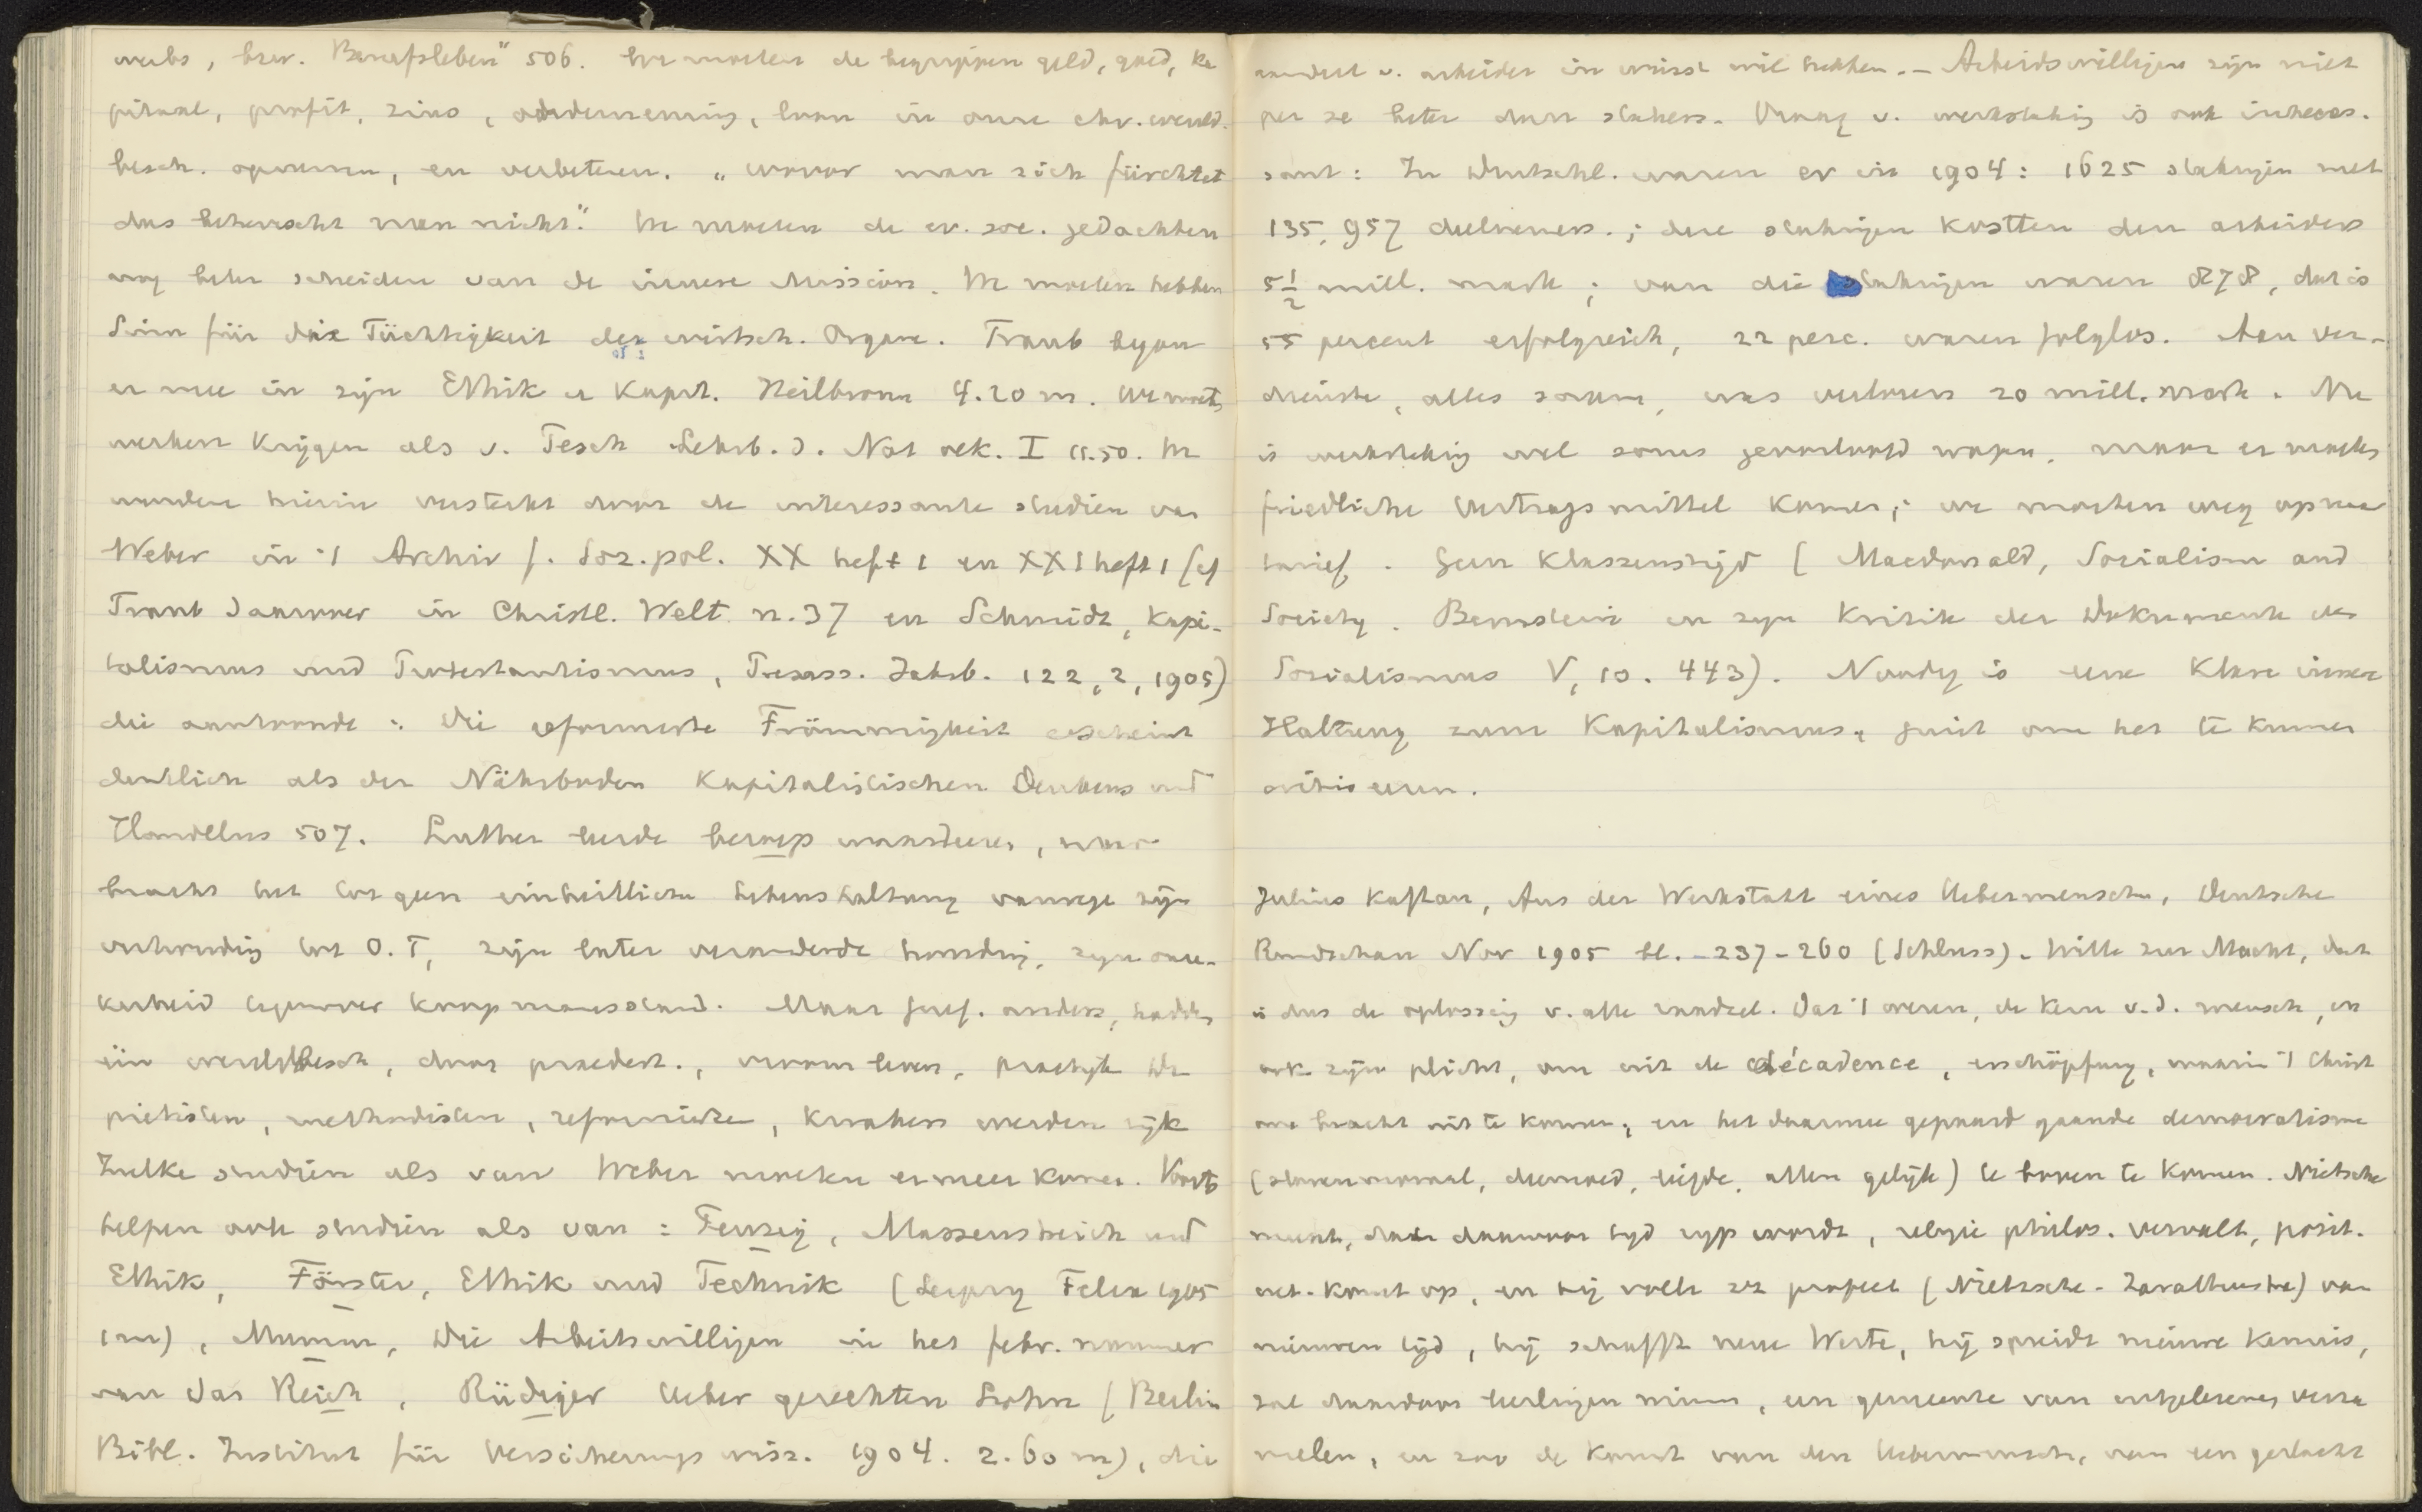 werbs, bzw. Berufsleben" 506. We moeten de begrippen geld, goed, ka
pitaal, profit, zins, onderneming, loon in onze chr. wereld-
besch. opnemen, en verbeteren. „wovor man sich fürchtet
das beherrscht man nicht." We moeten de ev. soc. gedachten
nog beter scheiden van de innere Mission. We moeten hebben
Sinn für die Tüchtigkeit der wirtsch. Organe. Traub begon
er mee in zijn Ethik u Kapit. Heilbronn 4.20 m. We moeten
werken krijgen als v. Pesch Lehrb. d. Nat oek. I 11.50. We
worden hierin versterkt door de interessante studien van
Weber in 't Archiv f. Soz. pol. XX heft 1 en XXI heft 1 (cf
Traub daarover in Christl. Welt n. 37 en Schmidt, Kapi-
talismus und Protestantismus, Preuss. Jahrb. 122, 2, 1905)
die aantoonde: die reformierte Frömmigkeit erscheint
deutlich als der Nährboden Kapitalistischen Denkens und
Handelns 507. Luther leerde beroep waardeeren, maar
bracht het tot geen einheitliche Lebenshaltung vanwege zijn
verhouding tot O.T, zijn later veranderde houding, zijn onze-
kerheid tegenover koopmansstand. Maar Geref. anders, hadden
één wereldbesch, door praedest., vroom leven, practijk De
pietisten, methodisten, reformierte, kwakers werden rijk
Zulke studien als van Weber moeten er meer komen. Voorts
helpen ook studien als van: Fenzig, Massenstreik und
Ethik, Förster, Ethik und Technik (Leipzig Felix 1905
1 m), Mumm, Die Arbeitswilligen in het febr. nummer
van Das Reich, Rüdiger Ueber gerechten Lohn (Berlin
Bibl. Institut für Versicherungswiss. 1904. 2.60 m), die
aandeel v. arbeider in winst wil hebben. – Arbeidswilligen zijn niet
per se beter dan stakers. Vraag v. werkstaking is ook interes-
sant: In Deutschl. waren er in 1904: 1625 stakingen met
135,957 deelnemers.; deze stakingen kostten den arbeiders
5 1/2 mill. mark; van die stakingen waren 878, dat is
55 percent erfolgreich, 22 perc. waren folglos. Aan ver-
dienste, alles saam, was verloren 20 mill. mark. Nu
is werkstaking wel soms geoorloofd wapen, maar er moeten
friedliche Vertragsmittel komen; we moeten weg op naar
tarief. Geen Klassenstrijd (Macdonald, Socialism and
Society. Bernstein in zijn Kritik der Dokumente des
Sozialismus V, 10. 443). Noodig is eene klare innere
Haltung zum Kapitalismus, juist om het te kunnen
critiseeren.
Julius Kaftan, Aus der Werkstatt eines Uebermenschen, Deutsche
Rundschau Nov 1905 bl. 237-260 (Schluss). Wille zur Macht, dat
is dus de oplossing v. alle raadsel. Dat 't wezen, de kern v.d. mensch, en
ook zijn plicht, om uit de décadence, erschöpfung, waarin 't Christ
ons bracht uit te komen, en het daarmee gepaard gaande democratisme
(slavenmoraal, deemoed, liefde, allen gelijk) te boven te komen. Nietsche
meent, dat daarvoor tijd rijp wordt, religie philos. vervalt, posit.
wet. komt op, en hij voelt zich profeet (Nietzsche - Zarathustra) van
nieuwen tijd, hij schafft neue Werte, hij spreidt nieuwe kennis,
zal daardoor leerlingen winnen, een gemeente van uitgelezenen verza
melen, en zoo de komst van den Uebermensch, van een geslacht